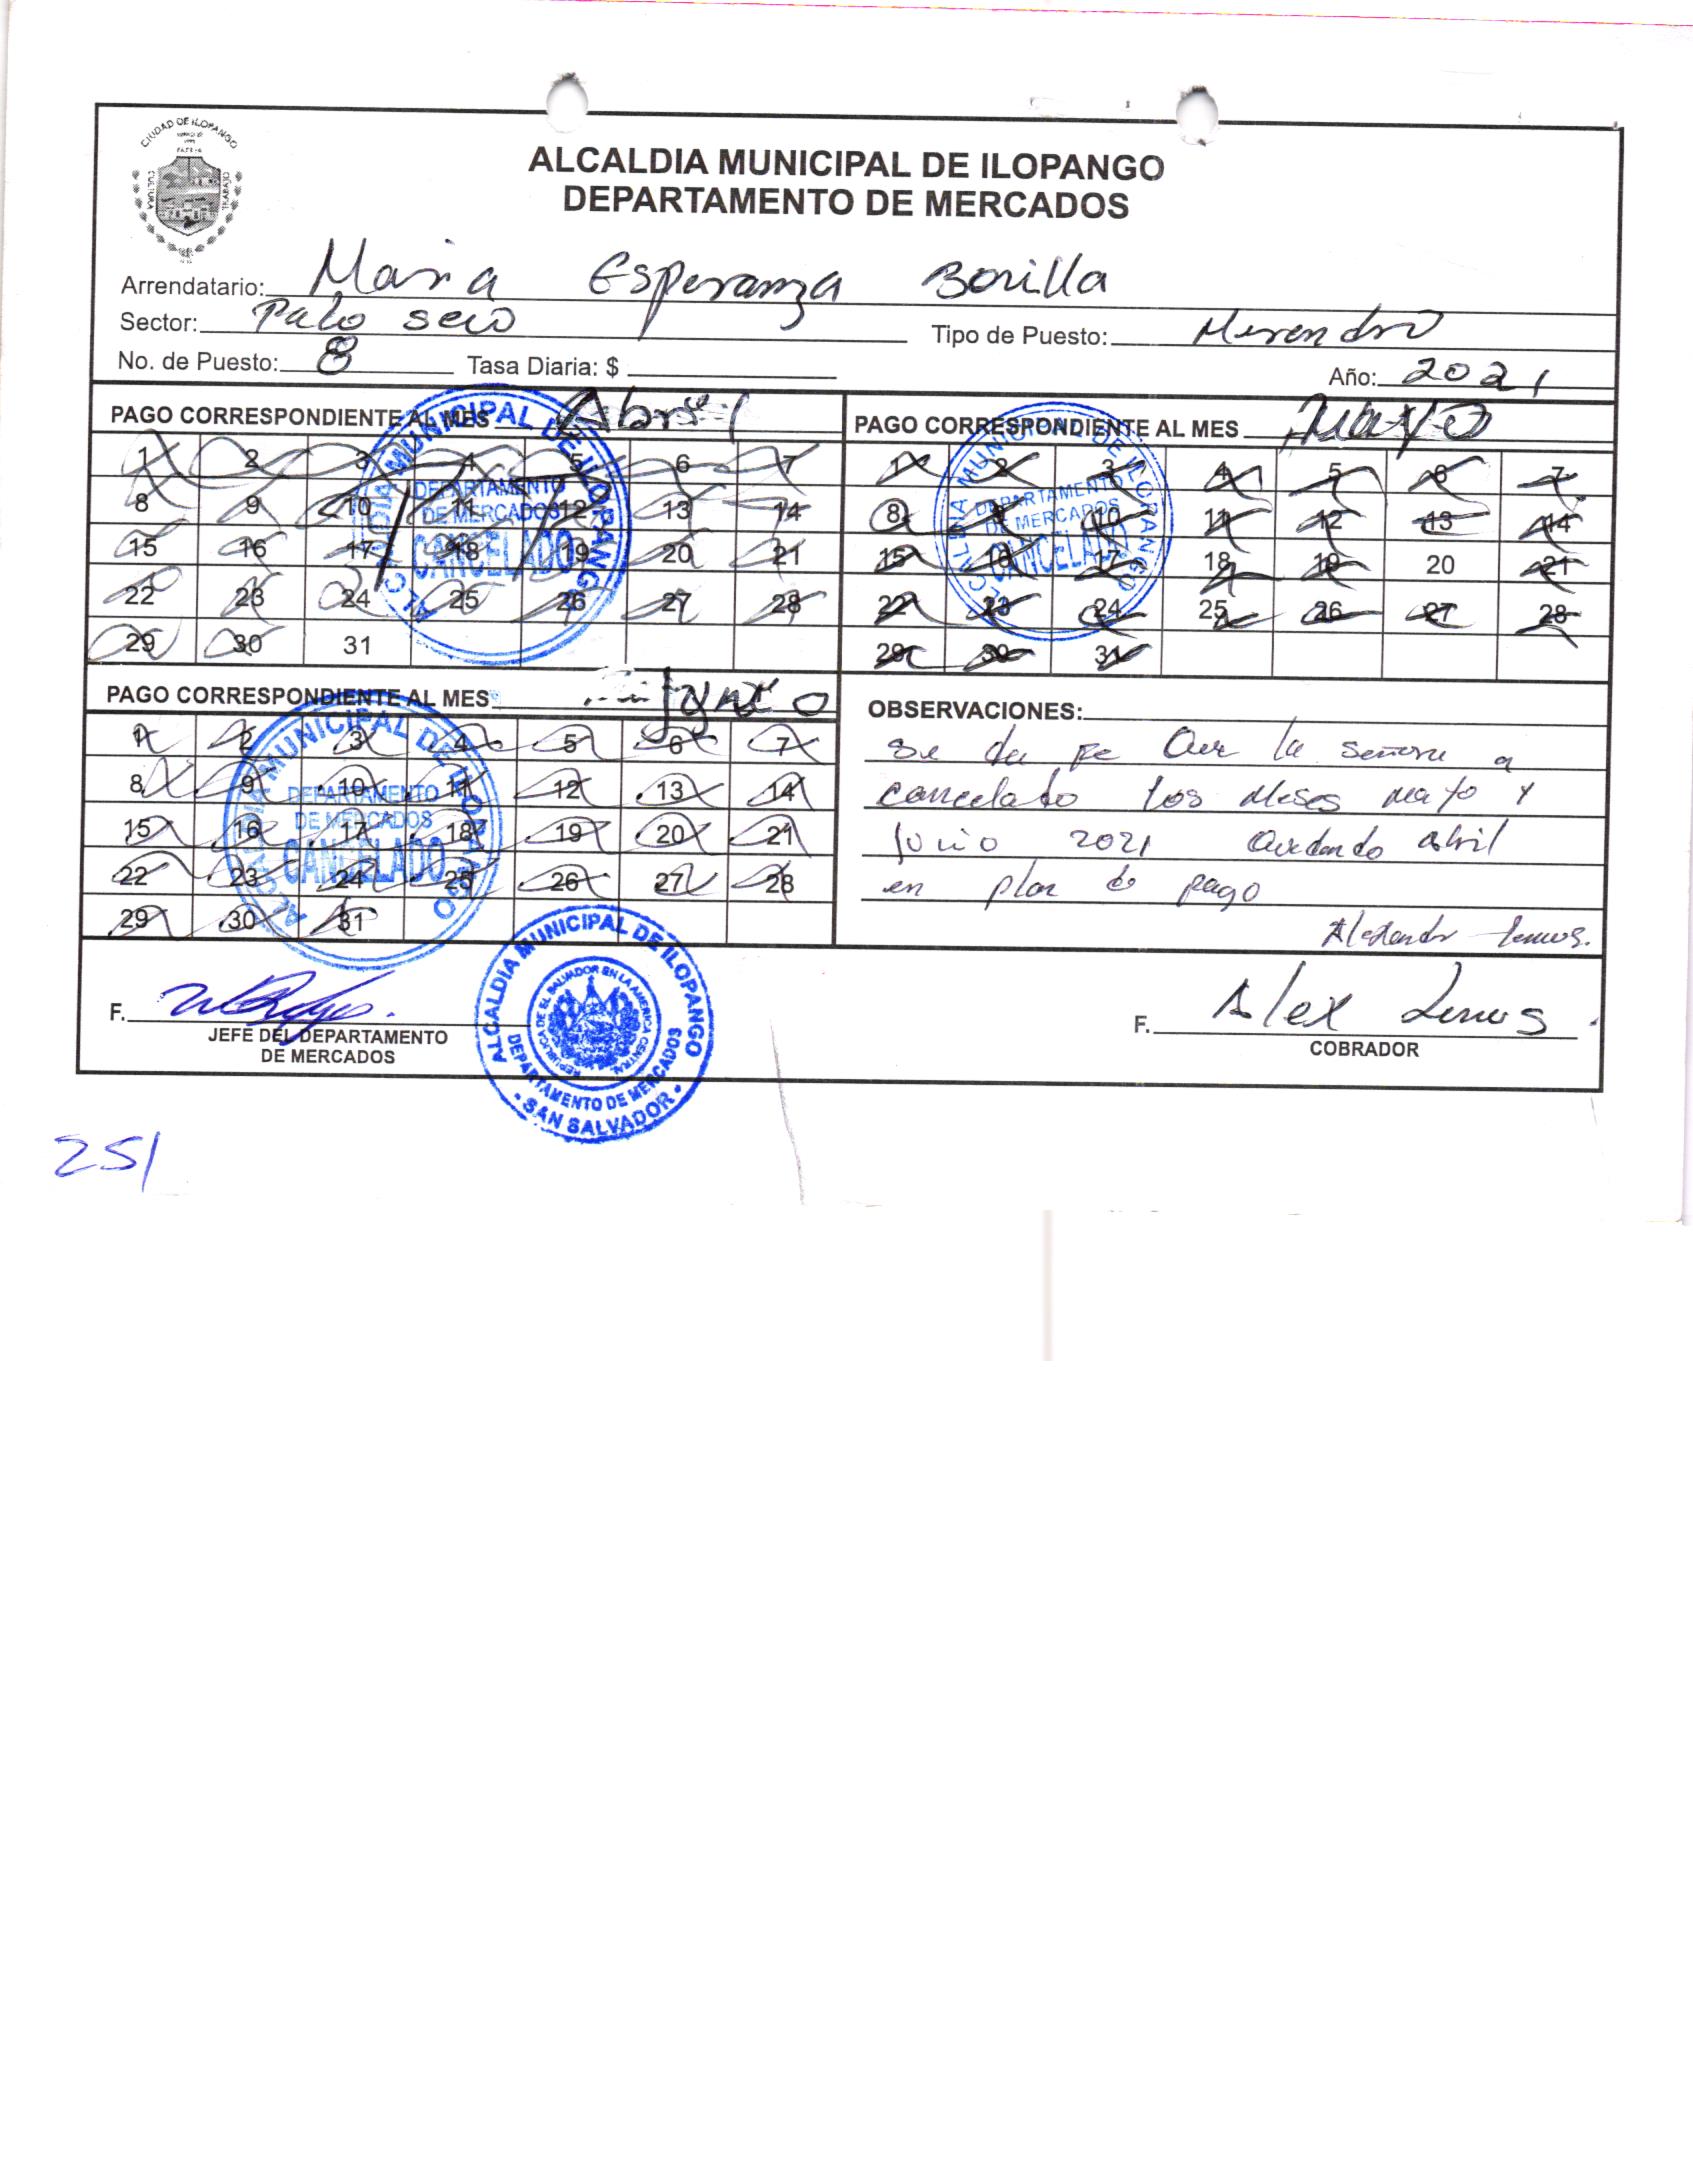 CIUDAD DE ILOPANGO
CULTURA
TRABAJO
ALCALDIA MUNICIPAL DE ILOPANGO
DEPARTAMENTO DE MERCADOS
Arrendatario: Maria Esperanza Bonilla
Sector: Palo seco Tipo de Puesto:
No. de Puesto: 8 Tasa Diaria: $
Año: 2021
PAGO CORRESPONDIENTE AL MES Abril
1 2 3 4 5 6 7
8 9 10 11 12 13 14
15 16 17 18 19 20 21
22 23 24 25 26 27 28
29 30 31
ALCALDIA MUNICIPAL DE ILOPANGO
DEPARTAMENTO
DE MERCADOS
CANCELADO
PAGO CORRESPONDIENTE AL MES Mayo
1 2 3 4 5 6 7
8 9 10 11 12 13 14
15 16 17 18 19 20 21
22 23 24 25 26 27 28
29 30 31
ALCALDIA MUNICIPAL DE ILOPANGO
DEPARTAMENTO
DE MERCADOS
CANCELADO
PAGO CORRESPONDIENTE AL MES Junio
1 2 3 4 5 6 7
8 9 10 11 12 13 14
15 16 17 18 19 20 21
22 23 24 25 26 27 28
29 30 31
ALCALDIA MUNICIPAL DE ILOPANGO
DEPARTAMENTO
DE MERCADOS
CANCELADO
OBSERVACIONES:
se da fe que la señora a
cancelado los Meses mayo y
Junio 2021 quedando abril
en plan de pago
Alexander Lemus.
F.
JEFE DEL DEPARTAMENTO
DE MERCADOS
ALCALDIA MUNICIPAL DE ILOPANGO
REPUBLICA DE EL SALVADOR EN LA AMERICA CENTRAL
DEPARTAMENTO DE MERCADOS
SAN SALVADOR
F. Alex Lemus
COBRADOR
251